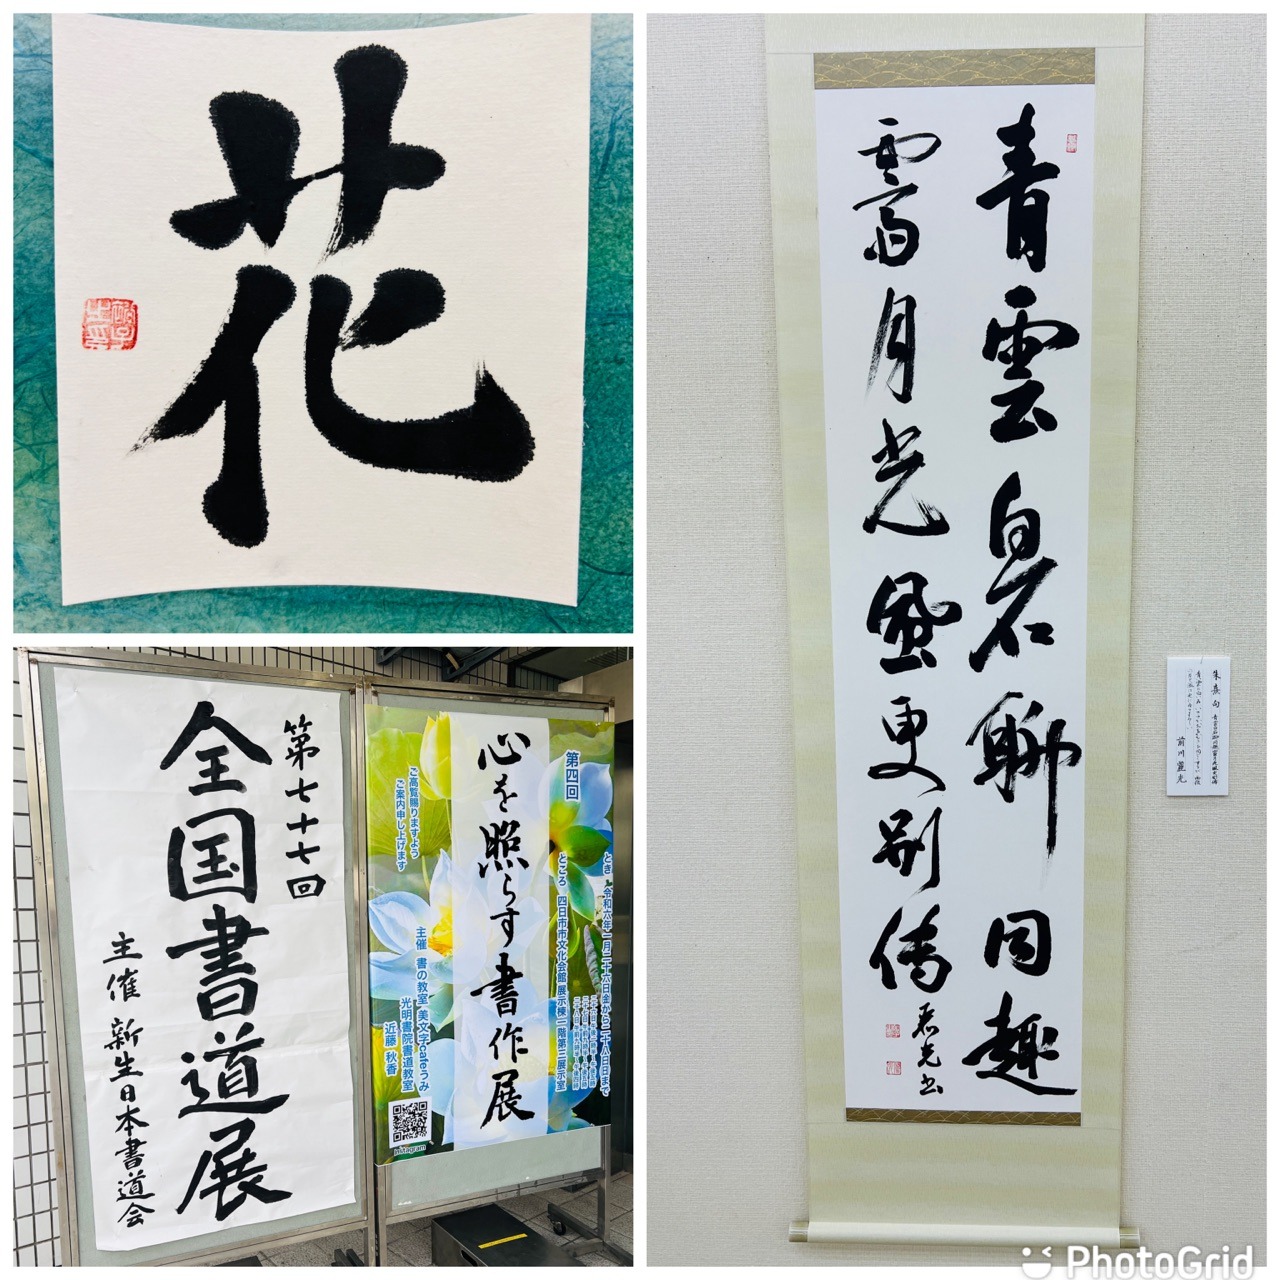 花
第七十七回
全国書道展
主催 新生日本書道会
とき 令和六年一月二十六日金から二十八日日まで
ところ 四日市市文化会館 展示棟一階第三展示室
第四回
心を照らす書作展
ご高覧賜りますよう
ご案内申し上げます
主催 書の教室 美文字cafeうみ
光明書院書道教室
近藤 秋香
Instagram
青雲白石聊同趣
霽月光風更別傳
朱熹句
前川麗光
PhotoGrid